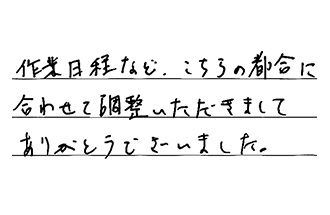 作業日程など、こちらの都合に
合わせて調整いただきまして
ありがとうございました。